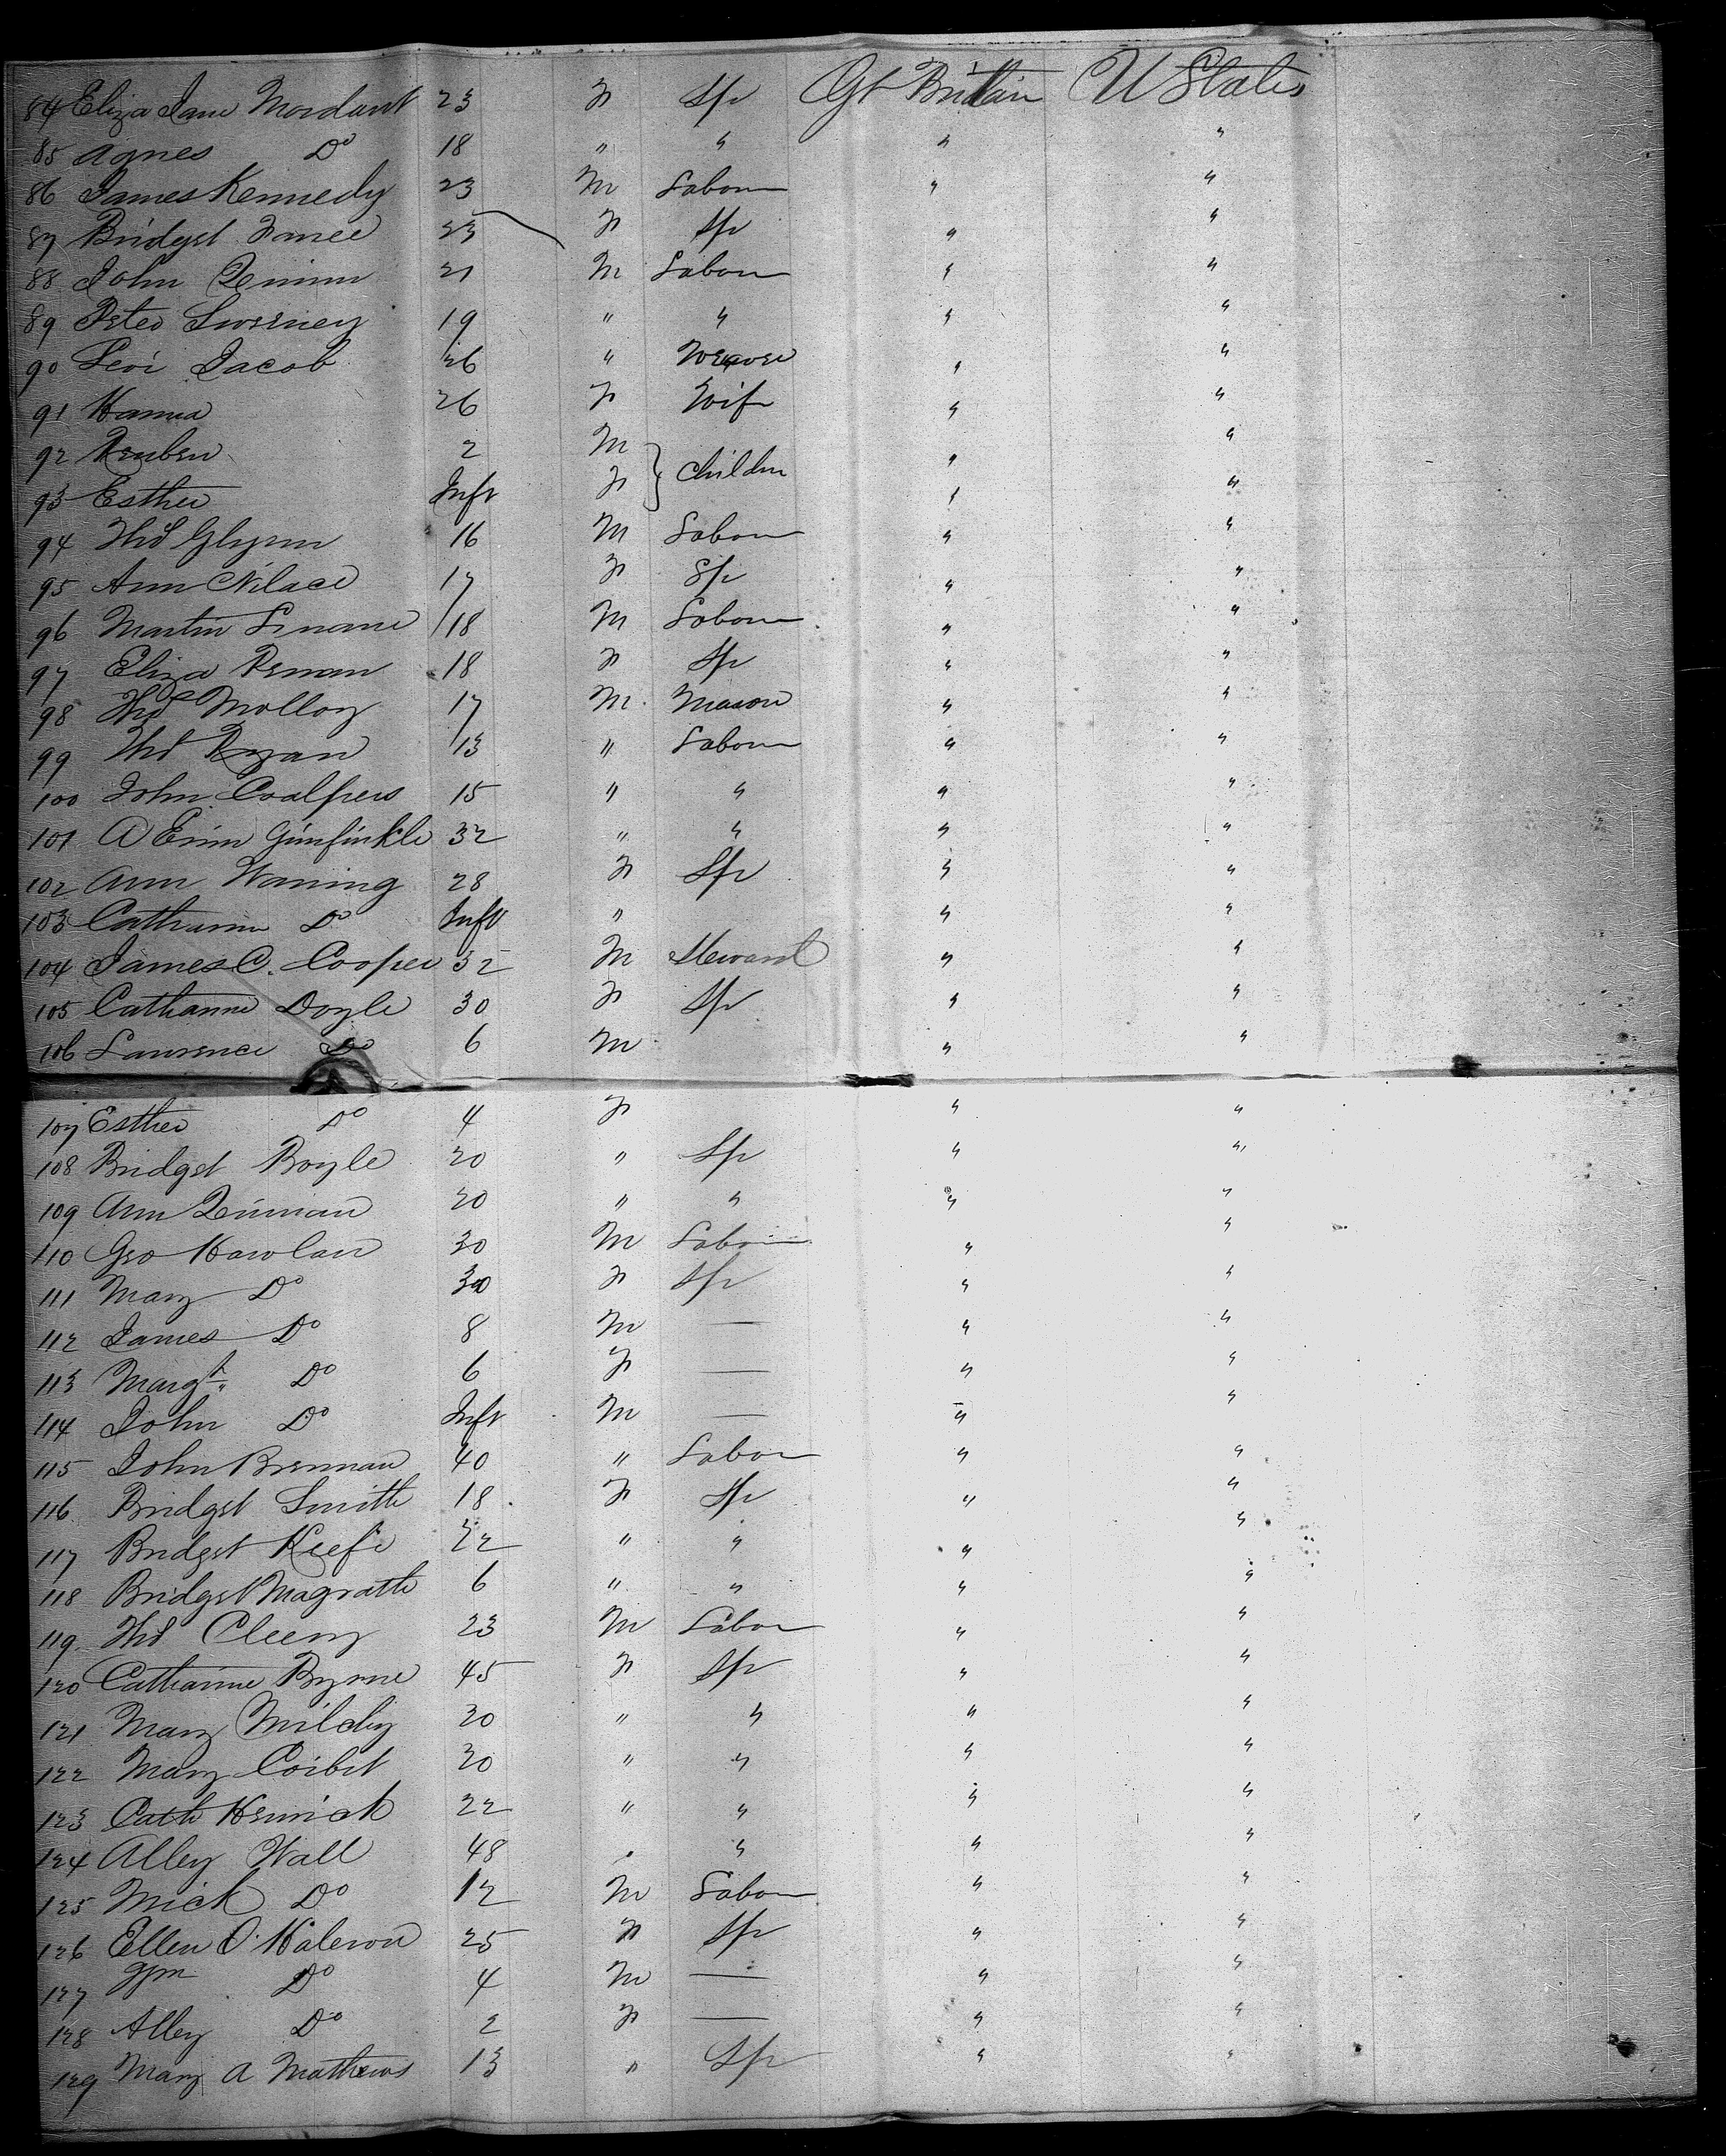 84 Eliza Jane Mordant 23 F Sp Gt Brittain U States
85 Agnes Do 18 " " " "
86 James Kennedy 23 M Labour " "
87 Bridget 23 F Sp " "
88 John 21 M Labour " "
89 Peter Sweeney 19 " " " "
90 Levi Jacob 26 " Weaver " "
91 Hanna 26 F Wife " "
92 Reuben 2 M Children " "
93 Esther Inft F " "
94 Thos Glynn 16 M Labour " "
95 Ann 17 F Sp " "
96 Martin 18 M Labour " "
97 Eliza 18 F Sp " "
98 Thos Molloy 17 M Mason " "
99 Thos Ryan 13 " Labour " "
100 John 15 " " " "
101 A 32 " " " "
102 Ann Waning 28 F Sp " "
103 Catharine Do Inft " " "
104 James C. Cooper 32 M Steward " "
105 Catharine Doyle 30 F Sp " "
106 Lawrence Do 6 M " "
107 Esther Do 4 F " "
108 Bridget Boyle 20 " Sp " "
109 Ann 20 " " " "
110 Geo Hawlan 30 M Labour " "
111 Mary Do 30 F Sp " "
112 James Do 8 M — " "
113 Margt Do 6 F — " "
114 John Do Inft M — " "
115 John Brennan 40 " Labour " "
116 Bridget Smith 18 F Sp " "
117 Bridget Keefe 22 " " " "
118 Bridget Magrath 6 " " " "
119 Thos Cleery 23 M Labour " "
120 Catharine Byrne 45 F Sp " "
121 Mary 20 " " " "
122 Mary Coibit 20 " " " "
123 Cath 22 " " " "
124 Alley Wall 48 " " " "
125 Mick Do 12 M Labour " "
126 Ellen O'Haleron 25 F Sp " "
127 Do 4 M — " "
128 Alley Do 2 F — " "
129 Mary A Mathews 13 " Sp " "